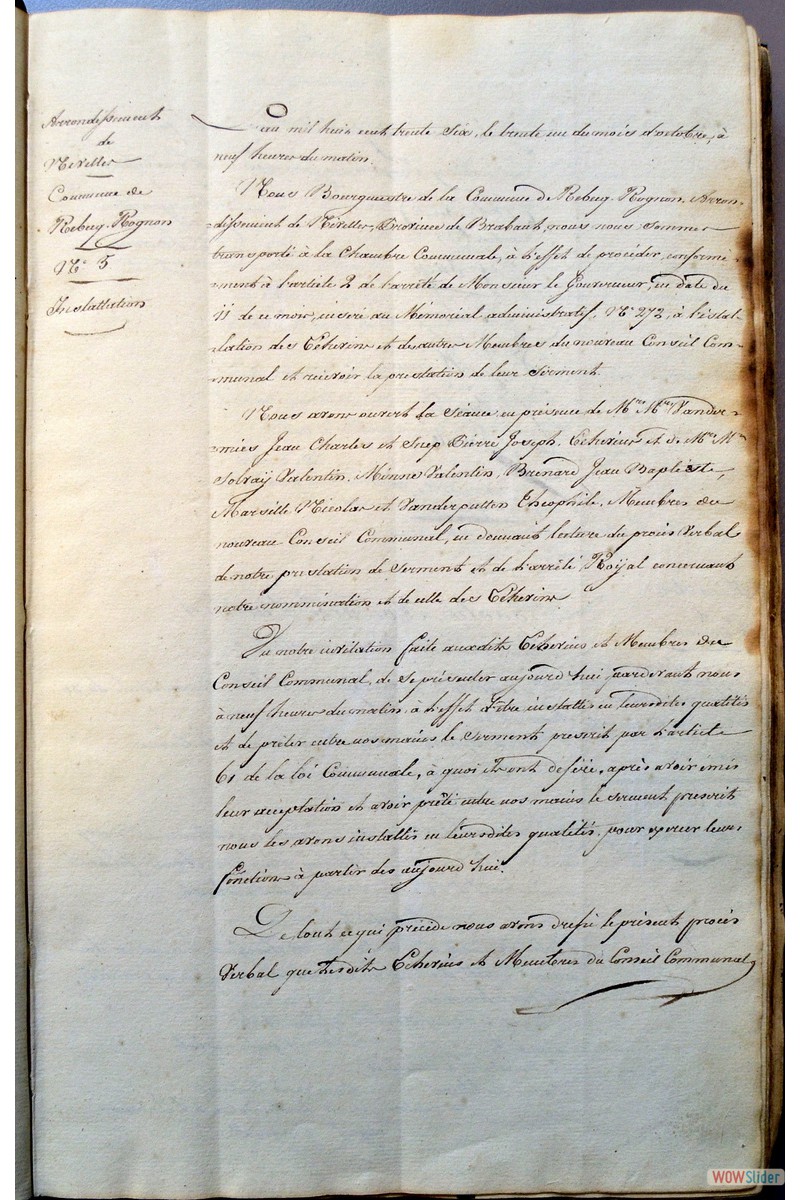 Arrondissement
de
Nivelles
Commune de
Rebecq-Rognon
N° 5
Installation
L'an mil huit cent trente six, le trente un du mois d'octobre, à
neuf heures du matin.
Nous Bourguestre de la Commune de Rebecq-Rognon, Arron-
dissement de Nivelles, Province de Brabant, nous nous sommes
transporté à la Chambre Communale, à l'effet de procéder, conformé-
ment à l'article 2 de l'arrêté de Monsieur le Gouverneur, en date du
11 de ce mois, inséré au Mémorial administratif, N° 272, à l'instal-
lation des Echevins et des autres Membres du nouveau Conseil Com-
munal et recevoir la prestation de leur serment.
Nous avons ouvert la Séance en présence de Mrs Mrs Vander-
Jean Charles et Snep Pierre Joseph, Echevins et de Mrs Mrs
Solvaÿ Valentin, Minne Valentin, Brenard Jean Baptiste,
Marsille Nicolas et Vanderputten Théophile, Membres du
nouveau Conseil Communal, en donnant lecture du procès Verbal
de notre prestation de Serment et de l'arrêté Roÿal concernant
notre nommination et de celle des Echevins.
Vu notre invitation faite auxdits Echevins et Membres du
Conseil Communal, de se présenter aujourd'hui, pardevant nous
à neuf heures du matin, à l'effet d'être installés en leursdites qualités
et de prêter entre nos mains le Serment prescrit par l'article
61 de la loi Communale, à quoi ils ont déféré, après avoir émis
leur acceptation et avoir prêté entre nos mains le serment prescrit
nous les avons installés en leursdites qualités, pour exercer leurs
fonctions à partir des aujourd'hui.
De tout ce qui précède nous avons dressé le présent procès
Verbal que lesdits Echevins et Membres du Conseil Communal,
WOWSlider